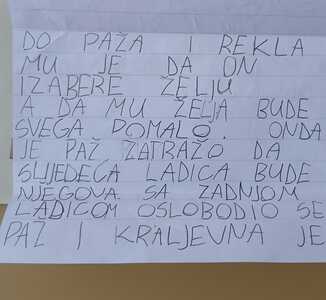 DO PAŽA I REKLA
MU JE DA ON
IZABERE ŽELJU
A DA MU ŽELJA BUDE
SVEGA POMALO. ONDA
JE PAŽ ZATRAŽO DA
SLJEDEĆA LADICA BUDE
NJEGOVA. SA ZADNJOM
LADICOM OSLOBODIO SE
PAŽ I KRALJEVNA JE